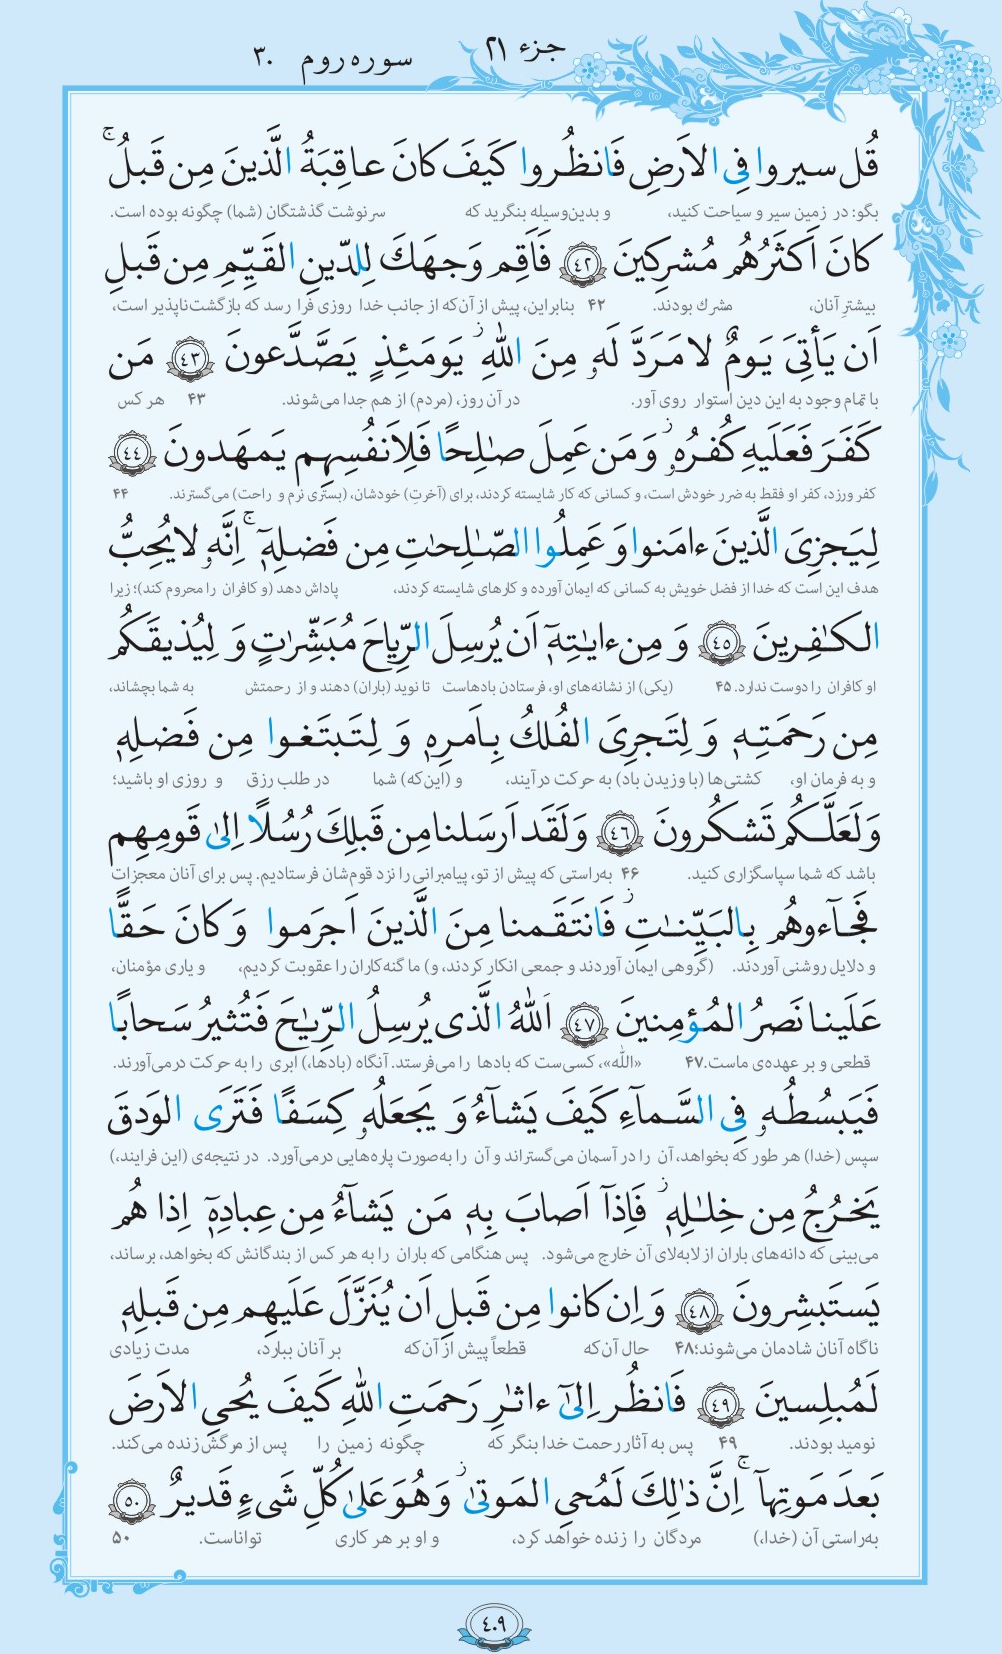 جزء ۲۱
سوره روم ۳۰
قُل سیروا فِی الاَرضِ فَانظُروا کَیفَ کانَ عاقِبَةُ الَّذینَ مِن قَبلُ ۚ
بگو: در زمین سیر و سیاحت کنید، و بدین‌وسیله بنگرید که سرنوشت گذشتگان (شما) چگونه بوده است.
کانَ اَکثَرُهُم مُشرِکینَ ﴿٤٢﴾ فَاَقِم وَجهَکَ لِلدّینِ القَیِّمِ مِن قَبلِ
بیشترِ آنان، مشرك بودند. ۴۲ بنابراین، پیش از آن‌که از جانب خدا روزی فرا رسد که بازگشت‌ناپذیر است،
اَن یَأتِیَ یَومٌ لا مَرَدَّ لَهٗ مِنَ اللّٰهِ ۖ یَومَئِذٍ یَصَّدَّعونَ ﴿٤٣﴾ مَن
با تمام وجود به این دین استوار روی آور. در آن روز، (مردم) از هم جدا می‌شوند. ۴۳ هر کس
کَفَرَ فَعَلَیهِ کُفرُهٗ ۖ وَ مَن عَمِلَ صٰلِحًا فَلِاَنفُسِهِم یَمهَدونَ ﴿٤٤﴾
کفر ورزد، کفر او فقط به ضرر خودش است، و کسانی که کار شایسته کردند، برای (آخرتِ) خودشان، (بستری نرم و راحت) می‌گسترند. ۴۴
لِیَجزِیَ الَّذینَ ءامَنوا وَ عَمِلُوا الصّٰلِحٰتِ مِن فَضلِهٖٓ ۚ اِنَّهٗ لا یُحِبُّ
هدف این است که خدا از فضل خویش به کسانی که ایمان آورده و کارهای شایسته کردند، پاداش دهد (و کافران را محروم کند)؛ زیرا
الکٰفِرینَ ﴿٤٥﴾ وَ مِن ءایٰتِهٖٓ اَن یُرسِلَ الرِّیاحَ مُبَشِّرٰتٍ وَ لِیُذیقَکُم
او کافران را دوست ندارد. ۴۵ (یکی) از نشانه‌های او، فرستادن بادهاست تا نوید (باران) دهند و از رحمتش به شما بچشاند،
مِن رَحمَتِهٖ وَ لِتَجرِیَ الفُلکُ بِاَمرِهٖ وَ لِتَبتَغوا مِن فَضلِهٖ
و به فرمان او، کشتی‌ها (با وزیدن باد) به حرکت درآیند، و (این‌که) شما در طلب رزق و روزی او باشید؛
وَ لَعَلَّکُم تَشکُرونَ ﴿٤٦﴾ وَ لَقَد اَرسَلنا مِن قَبلِکَ رُسُلًا اِلیٰ قَومِهِم
باشد که شما سپاسگزاری کنید. ۴۶ به‌راستی که پیش از تو، پیامبرانی را نزد قوم‌شان فرستادیم. پس برای آنان معجزات
فَجآءوهُم بِالبَیِّنٰتِ ۖ فَانتَقَمنا مِنَ الَّذینَ اَجرَموا وَ کانَ حَقًّا
و دلایل روشنی آوردند. (گروهی ایمان آوردند و جمعی انکار کردند، و) ما گنه‌کاران را عقوبت کردیم، و یاری مؤمنان،
عَلَینا نَصرُ المُؤمِنینَ ﴿٤٧﴾ اَللّٰهُ الَّذی یُرسِلُ الرِّیٰحَ فَتُثیرُ سَحابًا
قطعی و بر عهده‌ی ماست. ۴۷ «اللّٰه»، کسی‌ست که بادها را می‌فرستد. آنگاه (بادها،) ابری را به حرکت درمی‌آورند.
فَیَبسُطُهٗ فِی السَّمآءِ کَیفَ یَشآءُ وَ یَجعَلُهٗ کِسَفًا فَتَرَی الوَدقَ
سپس (خدا) هر طور که بخواهد، آن را در آسمان می‌گستراند و آن را به‌صورت پاره‌هایی درمی‌آورد. در نتیجه‌ی (این فرایند،)
یَخرُجُ مِن خِلٰلِهٖ ۖ فَاِذآ اَصابَ بِهٖ مَن یَشآءُ مِن عِبادِهٖٓ اِذا هُم
می‌بینی که دانه‌های باران از لابه‌لای آن خارج می‌شود. پس هنگامی که باران را به هر کس از بندگانش که بخواهد، برساند،
یَستَبشِرونَ ﴿٤٨﴾ وَ اِن کانوا مِن قَبلِ اَن یُنَزَّلَ عَلَیهِم مِن قَبلِهٖ
ناگاه آنان شادمان می‌شوند؛ ۴۸ حال آن‌که قطعاً پیش از آن‌که بر آنان ببارد، مدت زیادی
لَمُبلِسینَ ﴿٤٩﴾ فَانظُر اِلیٰٓ ءاثٰرِ رَحمَتِ اللّٰهِ کَیفَ یُحیِ الاَرضَ
نومید بودند. ۴۹ پس به آثار رحمت خدا بنگر که چگونه زمین را پس از مرگش زنده می‌کند.
بَعدَ مَوتِهآ ۚ اِنَّ ذٰلِکَ لَمُحیِ المَوتیٰ ۖ وَ هُوَ عَلیٰ کُلِّ شَیءٍ قَدیرٌ ﴿٥٠﴾
به‌راستی آن (خدا،) مردگان را زنده خواهد کرد، و او بر هر کاری تواناست. ۵۰
٤٠٩